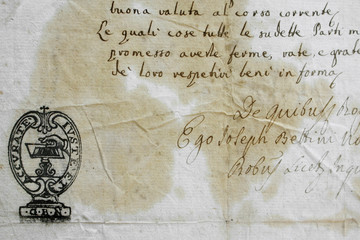 buona valuta al corso corrente
Le quali cose tutte le sudette Parti
promesso averle ferme, rate, e grate
de loro respetivi beni in forma
De Quibus
Ego Joseph Bettini
ACCURATE IUSTE